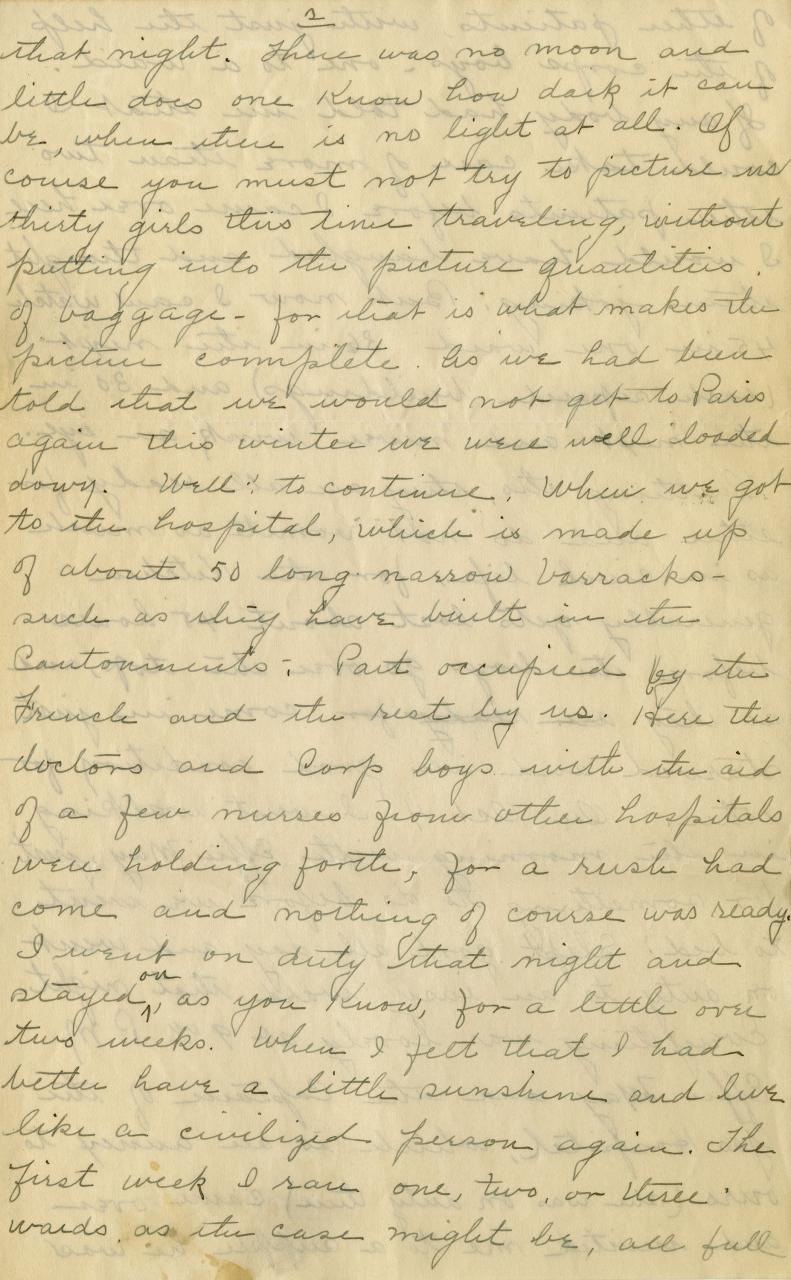 2
that night. There was no moon and
little does one Know how dark it can
be, when there is no light at all. Of
course you must not try to picture us
thirty girls this time traveling, without
putting into the picture quantities
of baggage - for that is what makes the
picture complete. As we had been
told that we would not get to Paris
again this winter we were well loaded
down. Well! to continue. When we got
to the hospital, which is made up
of about 50 long narrow barracks -
such as they have built in the
Cantonments -. Part occupied by the
French and the rest by us. Here the
doctors and Corp boys with the aid
of a few nurses from other hospitals
were holding forth, for a rush had
come and nothing of course was ready.
I went on duty that night and
stayed on, as you Know, for a little over
two weeks. When I felt that I had
better have a little sunshine and live
like a civilized person again. The
first week I ran one, two, or three
wards as the case might be, all full